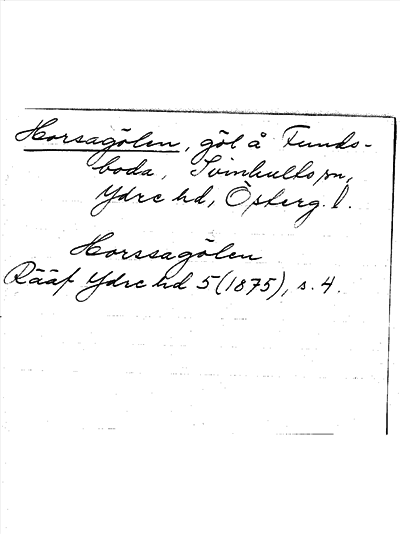 Horsagölen, göl å Funds-
boda, Svinhults sn,
Ydre hd, Österg. l.
Horssagölen
Rääf Ydre hd 5(1875), s. 4.